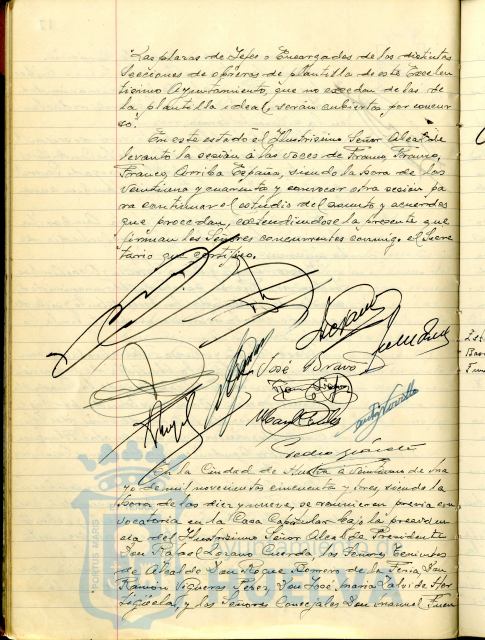 "Las plazas de Jefes o Encargados de las distintas
Secciones de obreros de plantilla de este Excelen
tísimo Ayuntamiento, que no excedan de las de
la plantilla ideal, serán cubiertas por concur
so".
En este estado el Ilustrísimo Señor Alcalde
levantó la sesión a las voces de Franco, Franco,
Franco, Arriba España, siendo la hora de las
veintiuna y cuarenta y convocar otra sesión pa
ra continuar el estudio del asunto y acuerdos
que procedan, extendiéndose la presente que
firman los Señores concurrentes conmigo el Secre
tario que certifico.
José Bravo
En la Ciudad de Huelva a veintiuno de
de mil novecientos cincuenta y tres, siendo la
hora de las diez y nueve, se reunieron previa con
vocatoria en la Casa Capitular bajo la presiden
cia del Ilustrísimo Señor Alcalde Presidente
Don Rafael Lozano Cuerda los Señores Tenientes
de Alcalde Don Roque Romero de la Feria, Don
Ramón Figueroa Perez, Don José María
y los Señores Concejales Don Manuel
PORTUS MARIS
HUELVA